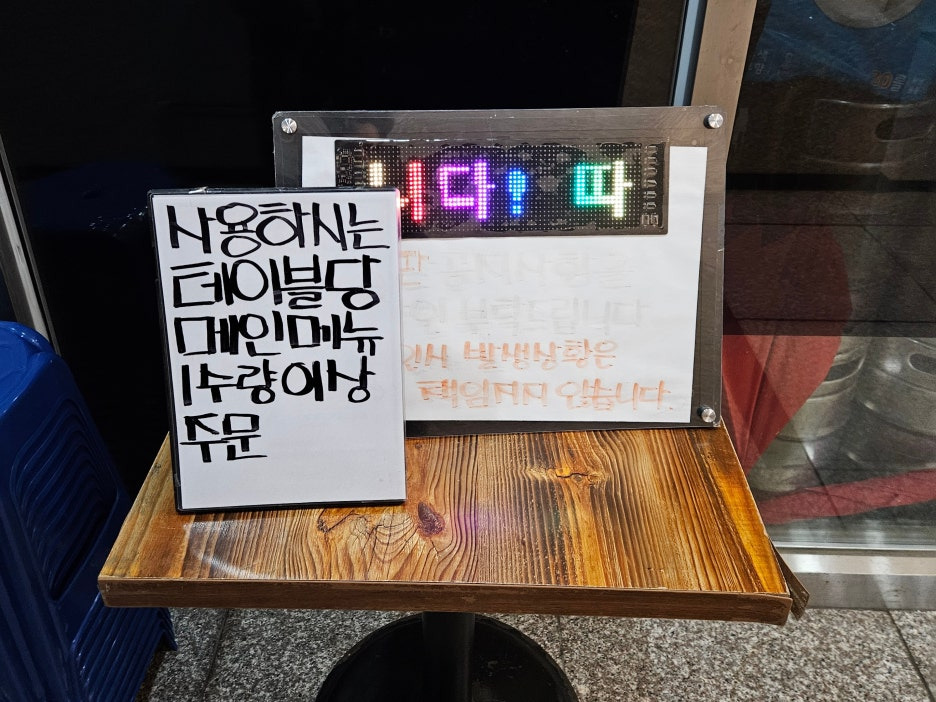 사용하시는
테이블당
메인메뉴
1수량이상
주문
니다! 따
부탁드립니다
발생상황은
책임지지 않습니다